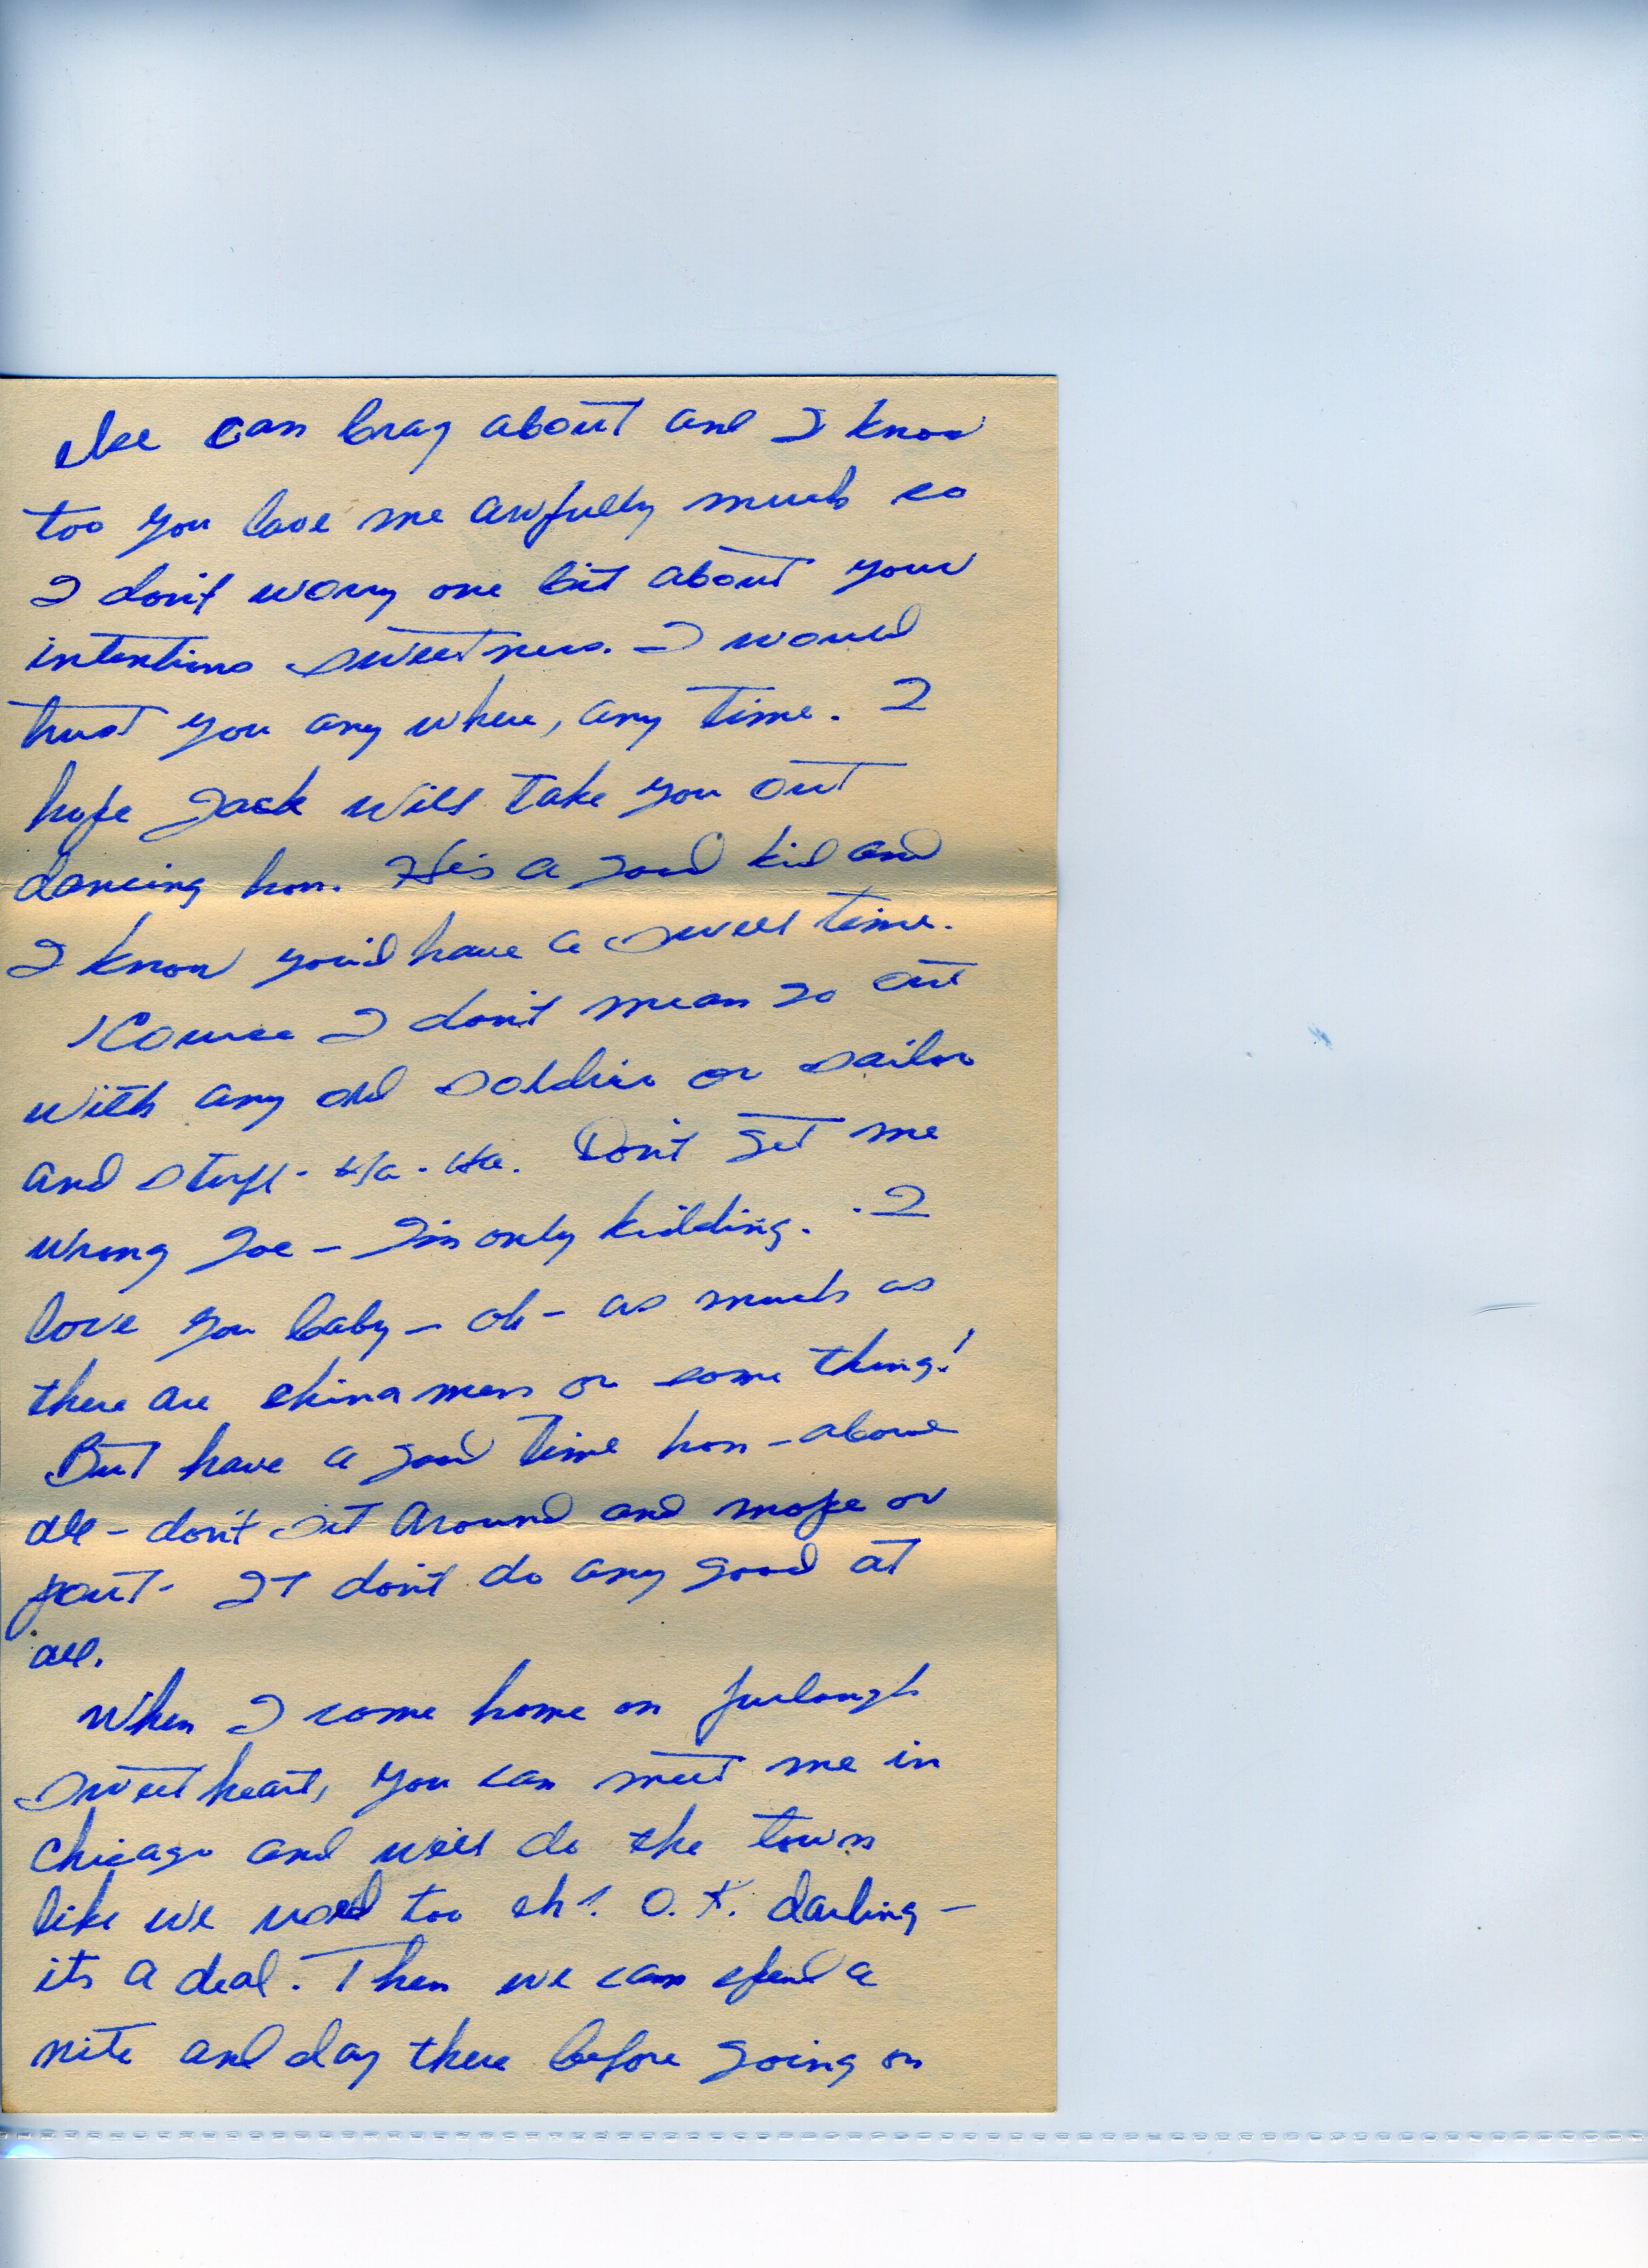 else can brag about and I know
too you love me awfully much so
I don't worry one bit about your
intentions sweetness. I would
trust you any where, any time. I
hope Jack will take you out
dancing hon. He's a good kid and
I know you'd have a swell time.
'Course I don't mean go out
with any old soldier or sailor
and stuff - Ha - Ha. Don't get me
wrong Joe - I'm only kidding. I
love you baby - oh - as much as
there are china men or some thing!
But have a good time hon - above
all - don't sit around and mope or
pout - It don't do any good at
all.
When I come home on furlough
sweet heart, you can meet me in
Chicago and we'll do the town
like we used too eh? O.K. darling -
its a deal. Then we can spend a
nite and day there before going on